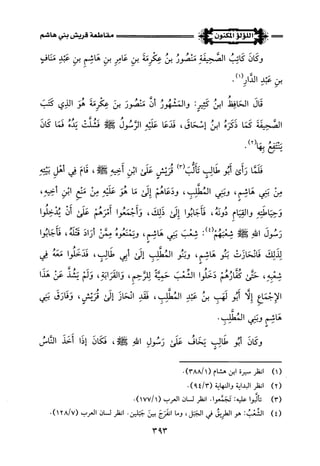 اللؤلؤ المكنون مقاطعة قريش بني هاشم
وكَانَ كَاتِبُ الصَّحِيفَةِ مَنْصُورُ بنُ عِكْرِمَةَ بنِ عَامِرِ بنِ هَاشِمِ بنِ عَبْدِ مَنَافِ
بنِ عَبْدِ الدَّارِ(١).
قَالَ الحَافِظُ ابنُ كَثِيرٍ: والمَشْهُورُ أنَّ مَنْصُورَ بنَ عِكْرِمَةَ هُوَ الذِي كَتَبَ
الصَّحِيفَةَ كَمَا ذَكَرَهُ ابنُ إسْحَاقَ، فَدَعَا عَلَيْهِ الرَّسُولُ ﷺ فَشُلَّتْ يَدُهُ فَمَا كَانَ
يَنْتَفِعُ بِهَا(٢).
فَلَمَّا رَأَى أَبُو طَالِبٍ تَأَلُّبَ(٣) قُرَيْشٍ عَلَى ابْنِ أخِيهِ ﷺ، قَامَ فِي أَهْلِ بَيْتِهِ
مِنْ بَنِي هَاشِمٍ، وبَنِي المُطَّلِبِ، ودَعَاهُمْ إِلَى مَا هُوَ عَلَيْهِ مِنْ مَنْعِ ابْنِ أخِيهِ،
وَحِيَاطَتِهِ والقِيَامِ دُونَهُ، فَأَجَابُوا إِلَى ذَلِكَ، وَأَجْمَعُوا أمْرَهُمْ عَلَى أنْ يُدْخِلُوا
رَسُولَ اللهِ ﷺ شِعْبَهُمْ(٤): شِعْبَ بَنِي هَاشِمٍ، ويَمْنَعُوهُ مِمَّنْ أرَادَ قَتْلَهُ، فَأَجَابُوا
لِذَلِكَ فَانْحَازَتْ بَنُو هَاشِمٍ، وبَنُو المُطَّلِبِ إِلَى أبِي طَالِبٍ، فَدَخَلُوا مَعَهُ فِي
شِعْبِهِ، حَتَّى كُفَّارُهُمْ دَخَلُوا الشِّعْبَ حَمِيَّةً لِلرَّحِمِ، والقَرَابَةِ، وَلَمْ يَشُذَّ عَنْ هَذَا
الإجْمَاعِ إلَّا أَبُو لَهَبِ بنُ عَبْدِ المُطَّلِبِ، فَقَدِ انْحَازَ إِلَى قُرَيْشٍ، وَفَارَقَ بَنِي
هَاشِمٍ وبَنِي المُطَّلِبِ.
وكَانَ أَبُو طَالِبٍ يَخَافُ عَلَى رَسُولِ اللهِ ﷺ، فَكَانَ إِذَا أخَذَ النَّاسُ
(١) انظر سيرة ابن هشام (٣٨٨/١).
(٢) انظر البداية والنهاية (٩٤/٣).
(٣) تألَّبوا عليه: تَجَمَّعوا. انظر لسان العرب (١٧٧/١).
(٤) الشِّعْبُ: هو الطريقُ في الجَبَلِ، وما انفَرَجَ بينَ جَبَلينِ. انظر لسان العرب (١٢٨/٧).
٣٩٣